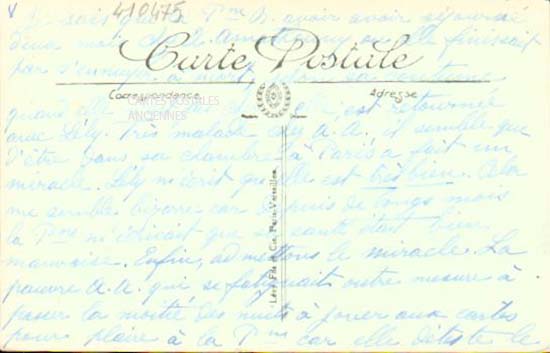 410475
Je sais que la Pme A. avoir avoir séjourné
deux mois
où elle finissait
par s'ennuyer à mort,
Carte Postale
Correspondance
Adresse
CARTES POSTALES
ANCIENNES
quand elle
elle, est retournée
avec Lély. Très malade
A. A. il semble que
d'être dans sa chambre à Paris a fait un
miracle. Lély m'écrit qu'elle est très bien. Cela
me semble bizarre car depuis de longs mois
la Pme m'écrivait que sa santé était bien
mauvaise. Enfin, admettons le miracle. La
pauvre A. A. qui se fatiguait outre mesure à
passer la moitié des nuits à jouer aux cartes
pour plaire à la Pme car elle déteste le
Lévy Fils et Cie, Paris-Versailles.